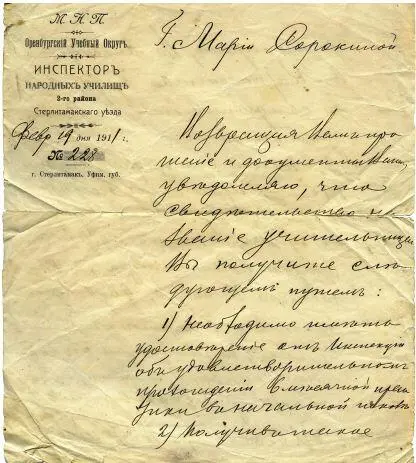 М. Н. П.
Оренбургскій Учебный Округъ.
ИНСПЕКТОРЪ
НАРОДНЫХЪ УЧИЛИЩЪ
2-го района
Стерлитамакскаго уѣзда
Февр 19 дня 1911 г.
№ 228
г. Стерлитамакъ, Уфим. губ.
Г. Маріи Сорокиной
Возвращая Ваше про
шеніе и документы Ваши,
увѣдомляю, что
свидѣтельство на
званіе учительницы
Вы получите слѣ
дующимъ путемъ:
1) Необходимо имѣть
удостовѣреніе отъ Инспектора
объ удовлетворительномъ
прохожденіи 6 мѣсячной прак
тики въ начальной школѣ
2) Получивъ такое